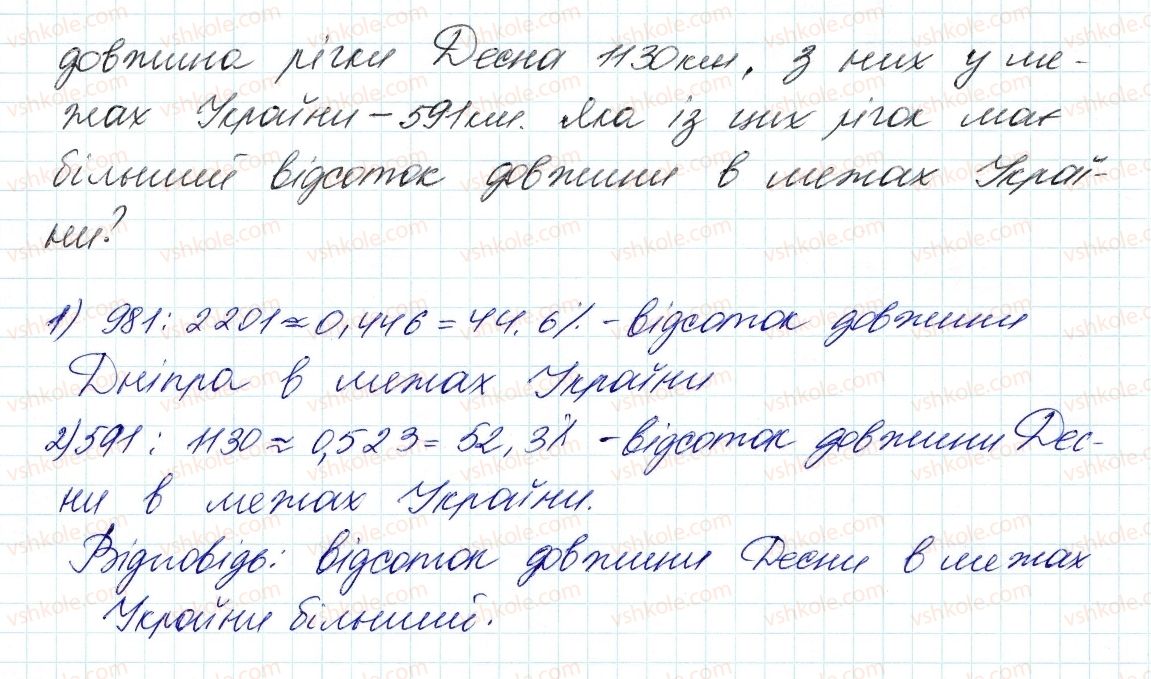 довжина річки Десна 1130 км, з них у ме-
жах України – 591 км. Яка із цих річок має
більший відсоток довжини в межах Украї-
ни?
1) 981 : 2201 ≈ 0,446 = 44.6% - відсоток довжини
Дніпра в межах України
2) 591 : 1130 ≈ 0,523 = 52,3% - відсоток довжини Дес-
ни в межах України.
Відповідь: відсоток довжини Десни в межах
України більший.